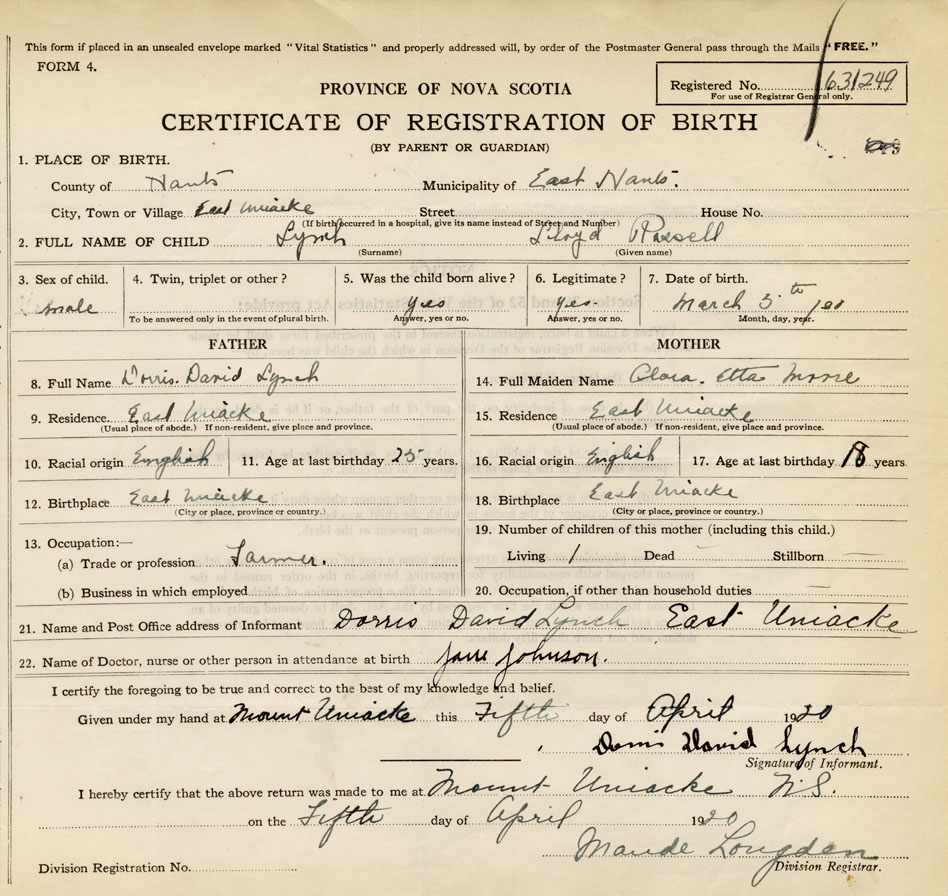 This form if placed in an unsealed envelope marked "Vital Statistics" and properly addressed will, by order of the Postmaster General pass through the Mails "FREE."
FORM 4.
Registered No. 631249
For use of Registrar General only.
PROVINCE OF NOVA SCOTIA
CERTIFICATE OF REGISTRATION OF BIRTH
(BY PARENT OR GUARDIAN)
1. PLACE OF BIRTH.
County of Hants Municipality of East Hants.
City, Town or Village East Uniacke Street House No.
(If birth occurred in a hospital, give its name instead of Street and Number)
2. FULL NAME OF CHILD Lynch Lloyd Russell
(Surname) (Given name)
3. Sex of child. 4. Twin, triplet or other? 5. Was the child born alive? 6. Legitimate? 7. Date of birth.
male yes yes March 5th
To be answered only in the event of plural birth. Answer, yes or no. Answer, yes or no. Month, day, year.
FATHER MOTHER
8. Full Name Dorris. David Lynch 14. Full Maiden Name Clara. Etta Moore
9. Residence. East Uniacke 15. Residence East Uniacke
(Usual place of abode.) If non-resident, give place and province. (Usual place of abode.) If non-resident, give place and province.
10. Racial origin English 11. Age at last birthday 25 years. 16. Racial origin English 17. Age at last birthday 18 years
12. Birthplace East Uniacke 18. Birthplace East Uniacke
(City or place, province or country.) (City or place, province or country.)
13. Occupation:— 19. Number of children of this mother (including this child.)
(a) Trade or profession Farmer. Living 1 Dead — Stillborn —
(b) Business in which employed 20. Occupation, if other than household duties —
21. Name and Post Office address of Informant Dorris David Lynch East Uniacke
22. Name of Doctor, nurse or other person in attendance at birth Jane Johnson.
I certify the foregoing to be true and correct to the best of my knowledge and belief.
Given under my hand at Mount Uniacke this Fifth day of April 1920
David Lynch
Signature of Informant.
I hereby certify that the above return was made to me at Mount Uniacke N.S.
on the Fifth day of April 1920
Maude Longden
Division Registration No. Division Registrar.